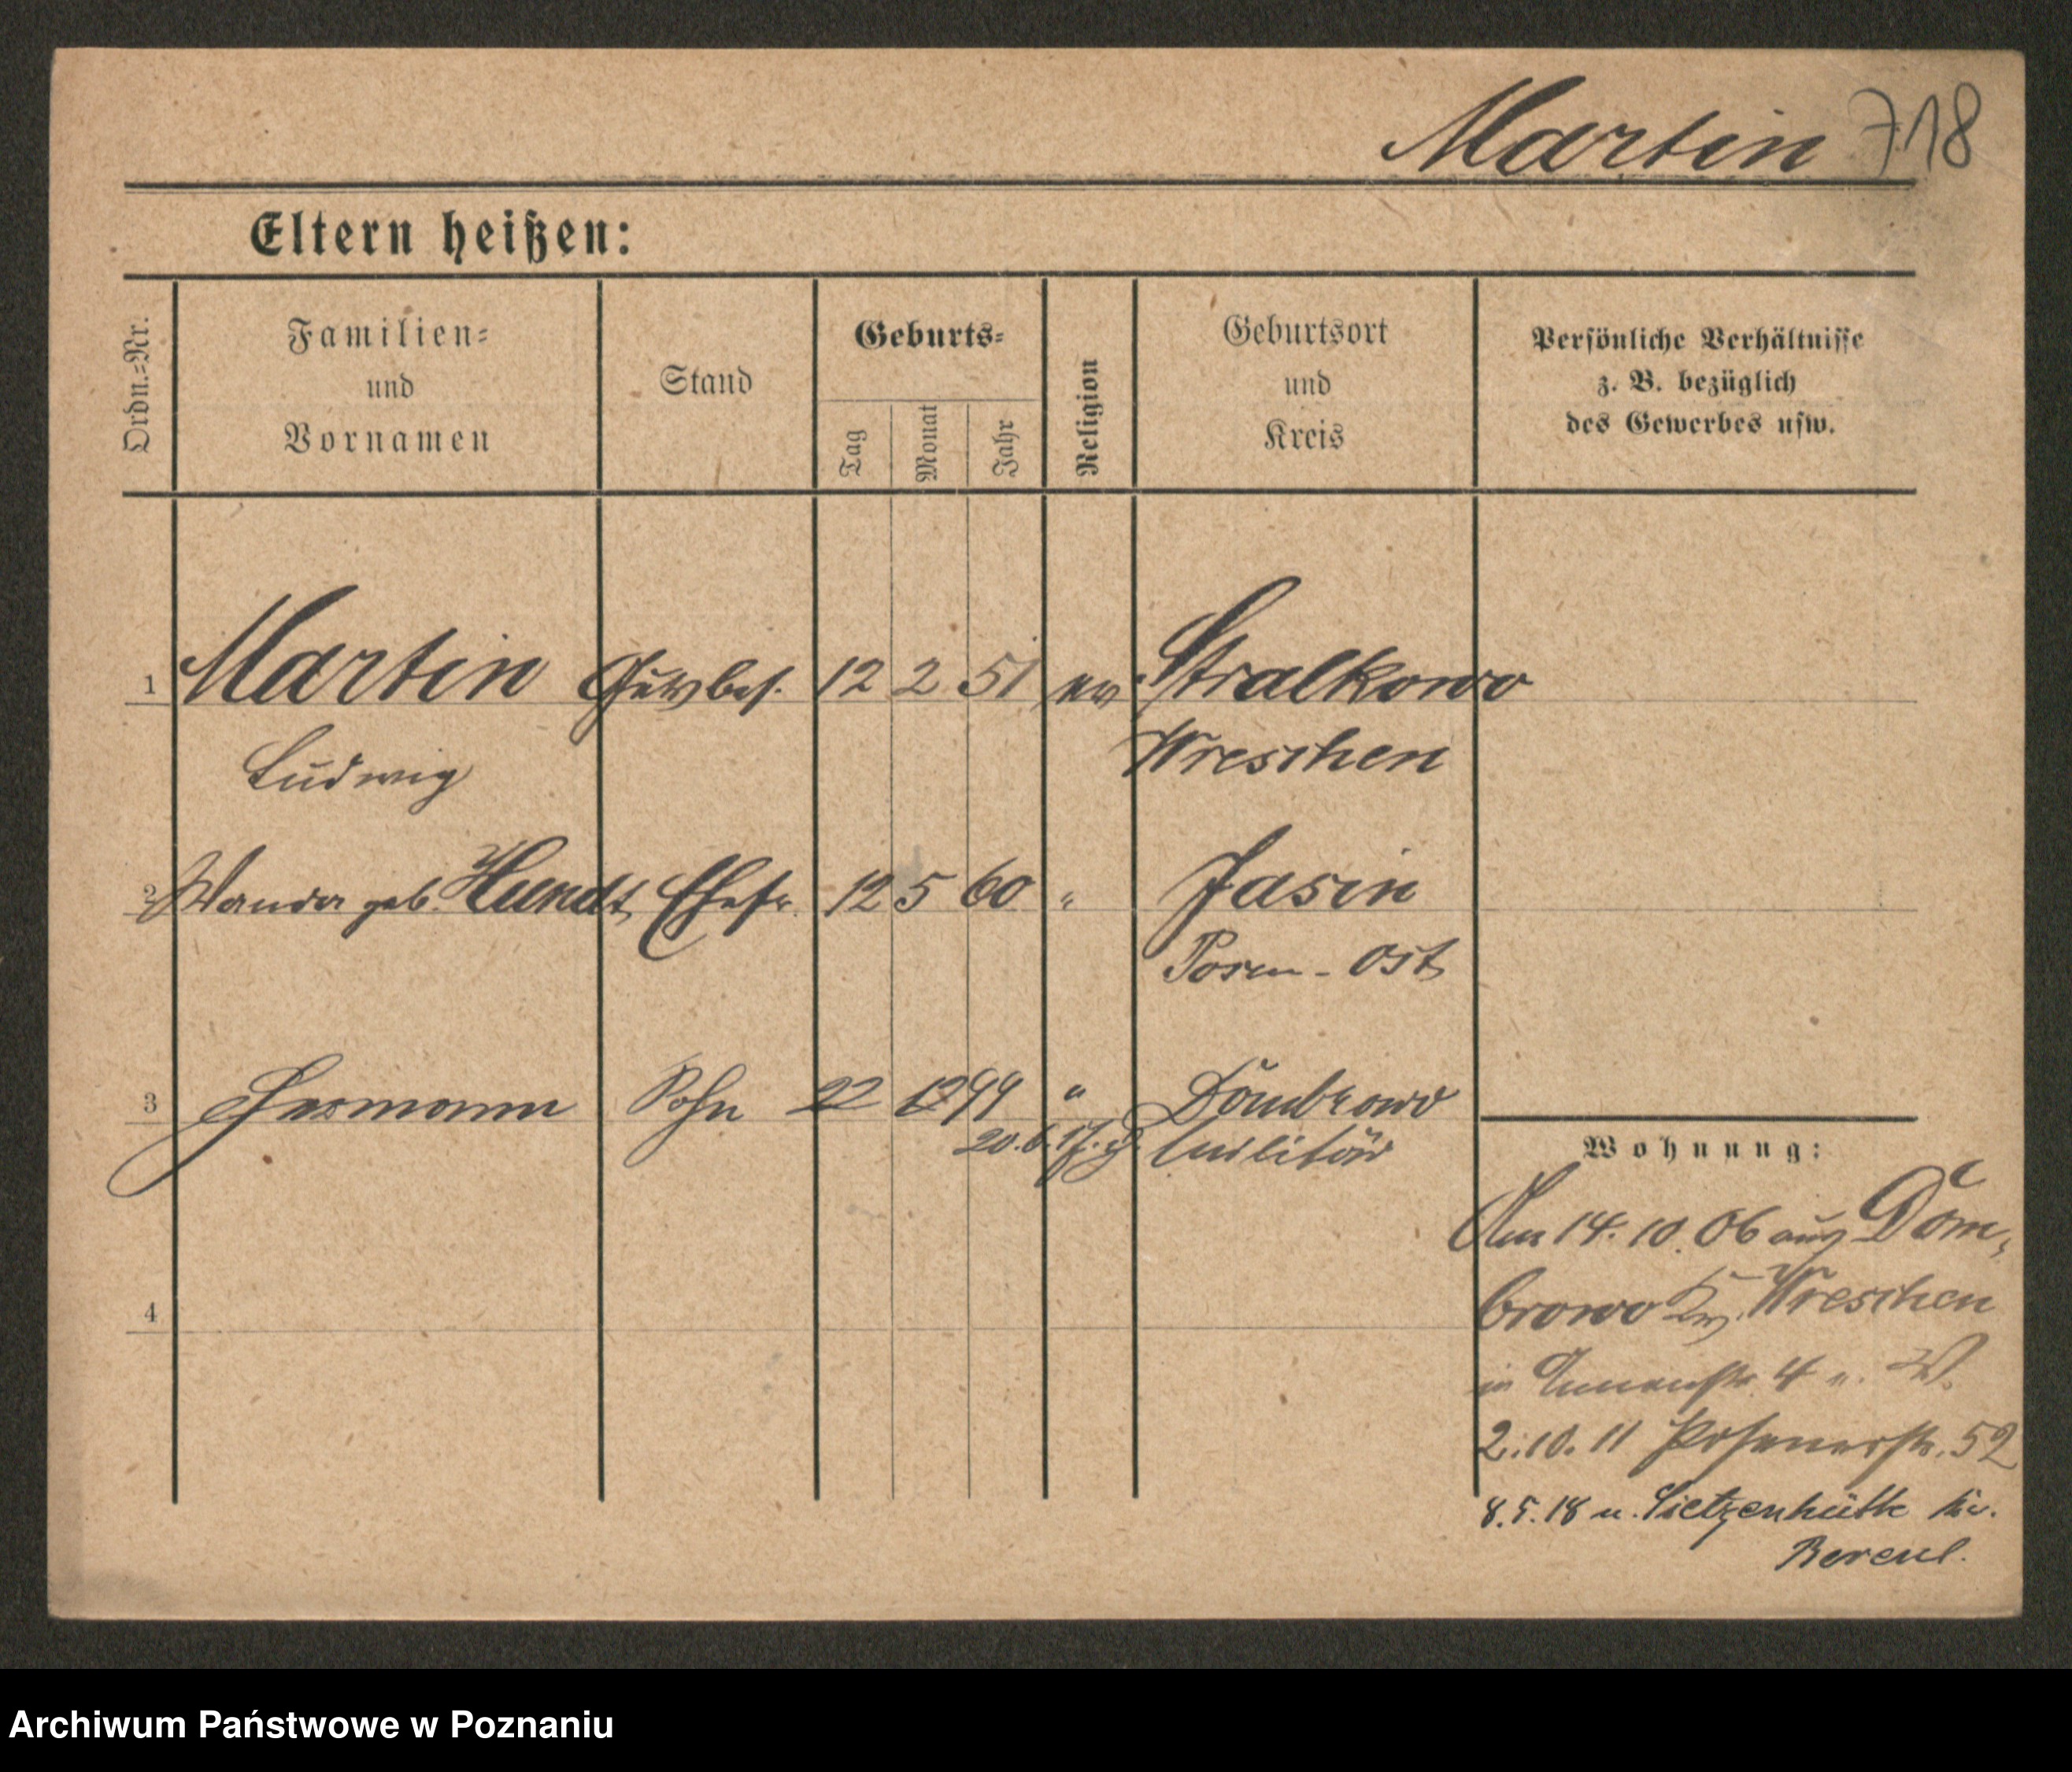 Martin 718
Eltern heißen:
Ordn.-Nr.
Familien-
und
Vornamen
Stand
Geburts-
Tag
Monat
Jahr
Religion
Geburtsort
und
Kreis
Persönliche Verhältnisse
z. B. bezüglich
des Gewerbes usw.
1 Martin 12 2 51 ev. Stralkowo
Ludwig Wreschen
2 Wanda geb. Hundt Ehefr. 12 5 60 " Jasin
Posen-Ost
3 Hermann Sohn 22 12 99 " Dombrowo
20.6.17. z. Militär
4
Wohnung:
Am 14.10.06 aus Dom-
browo Kr. Wreschen
in 4 u. W.
2.10.11 Posenerstr. 52
8.5.18 n. Kr.